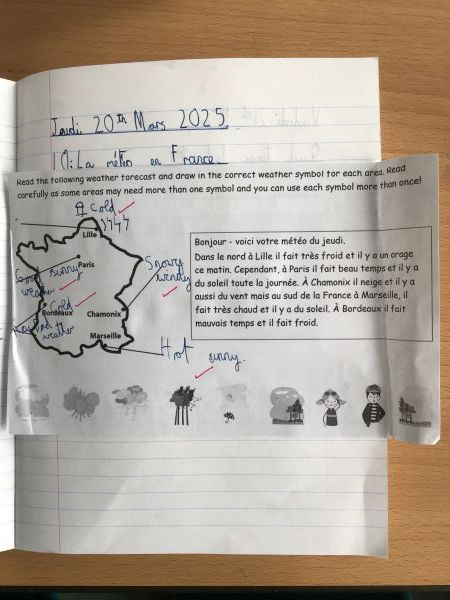 Jeudi 20th Mars 2025
LO: La météo en France
Read the following weather forecast and draw in the correct weather symbol for each area. Read
carefully as some areas may need more than one symbol and you can use each symbol more than once!
Cold
Lille
Bonjour - voici votre météo du jeudi.
Dans le nord à Lille il fait très froid et il y a un orage
ce matin. Cependant, à Paris il fait beau temps et il y a
du soleil toute la journée. À Chamonix il neige et il y a
aussi du vent mais au sud de la France à Marseille, il
fait très chaud et il y a du soleil. À Bordeaux il fait
mauvais temps et il fait froid.
Good sunny
weather
Paris
Snowy
windy
Cold
Bordeaux
Bad
weather
Chamonix
Marseille
Hot sunny.